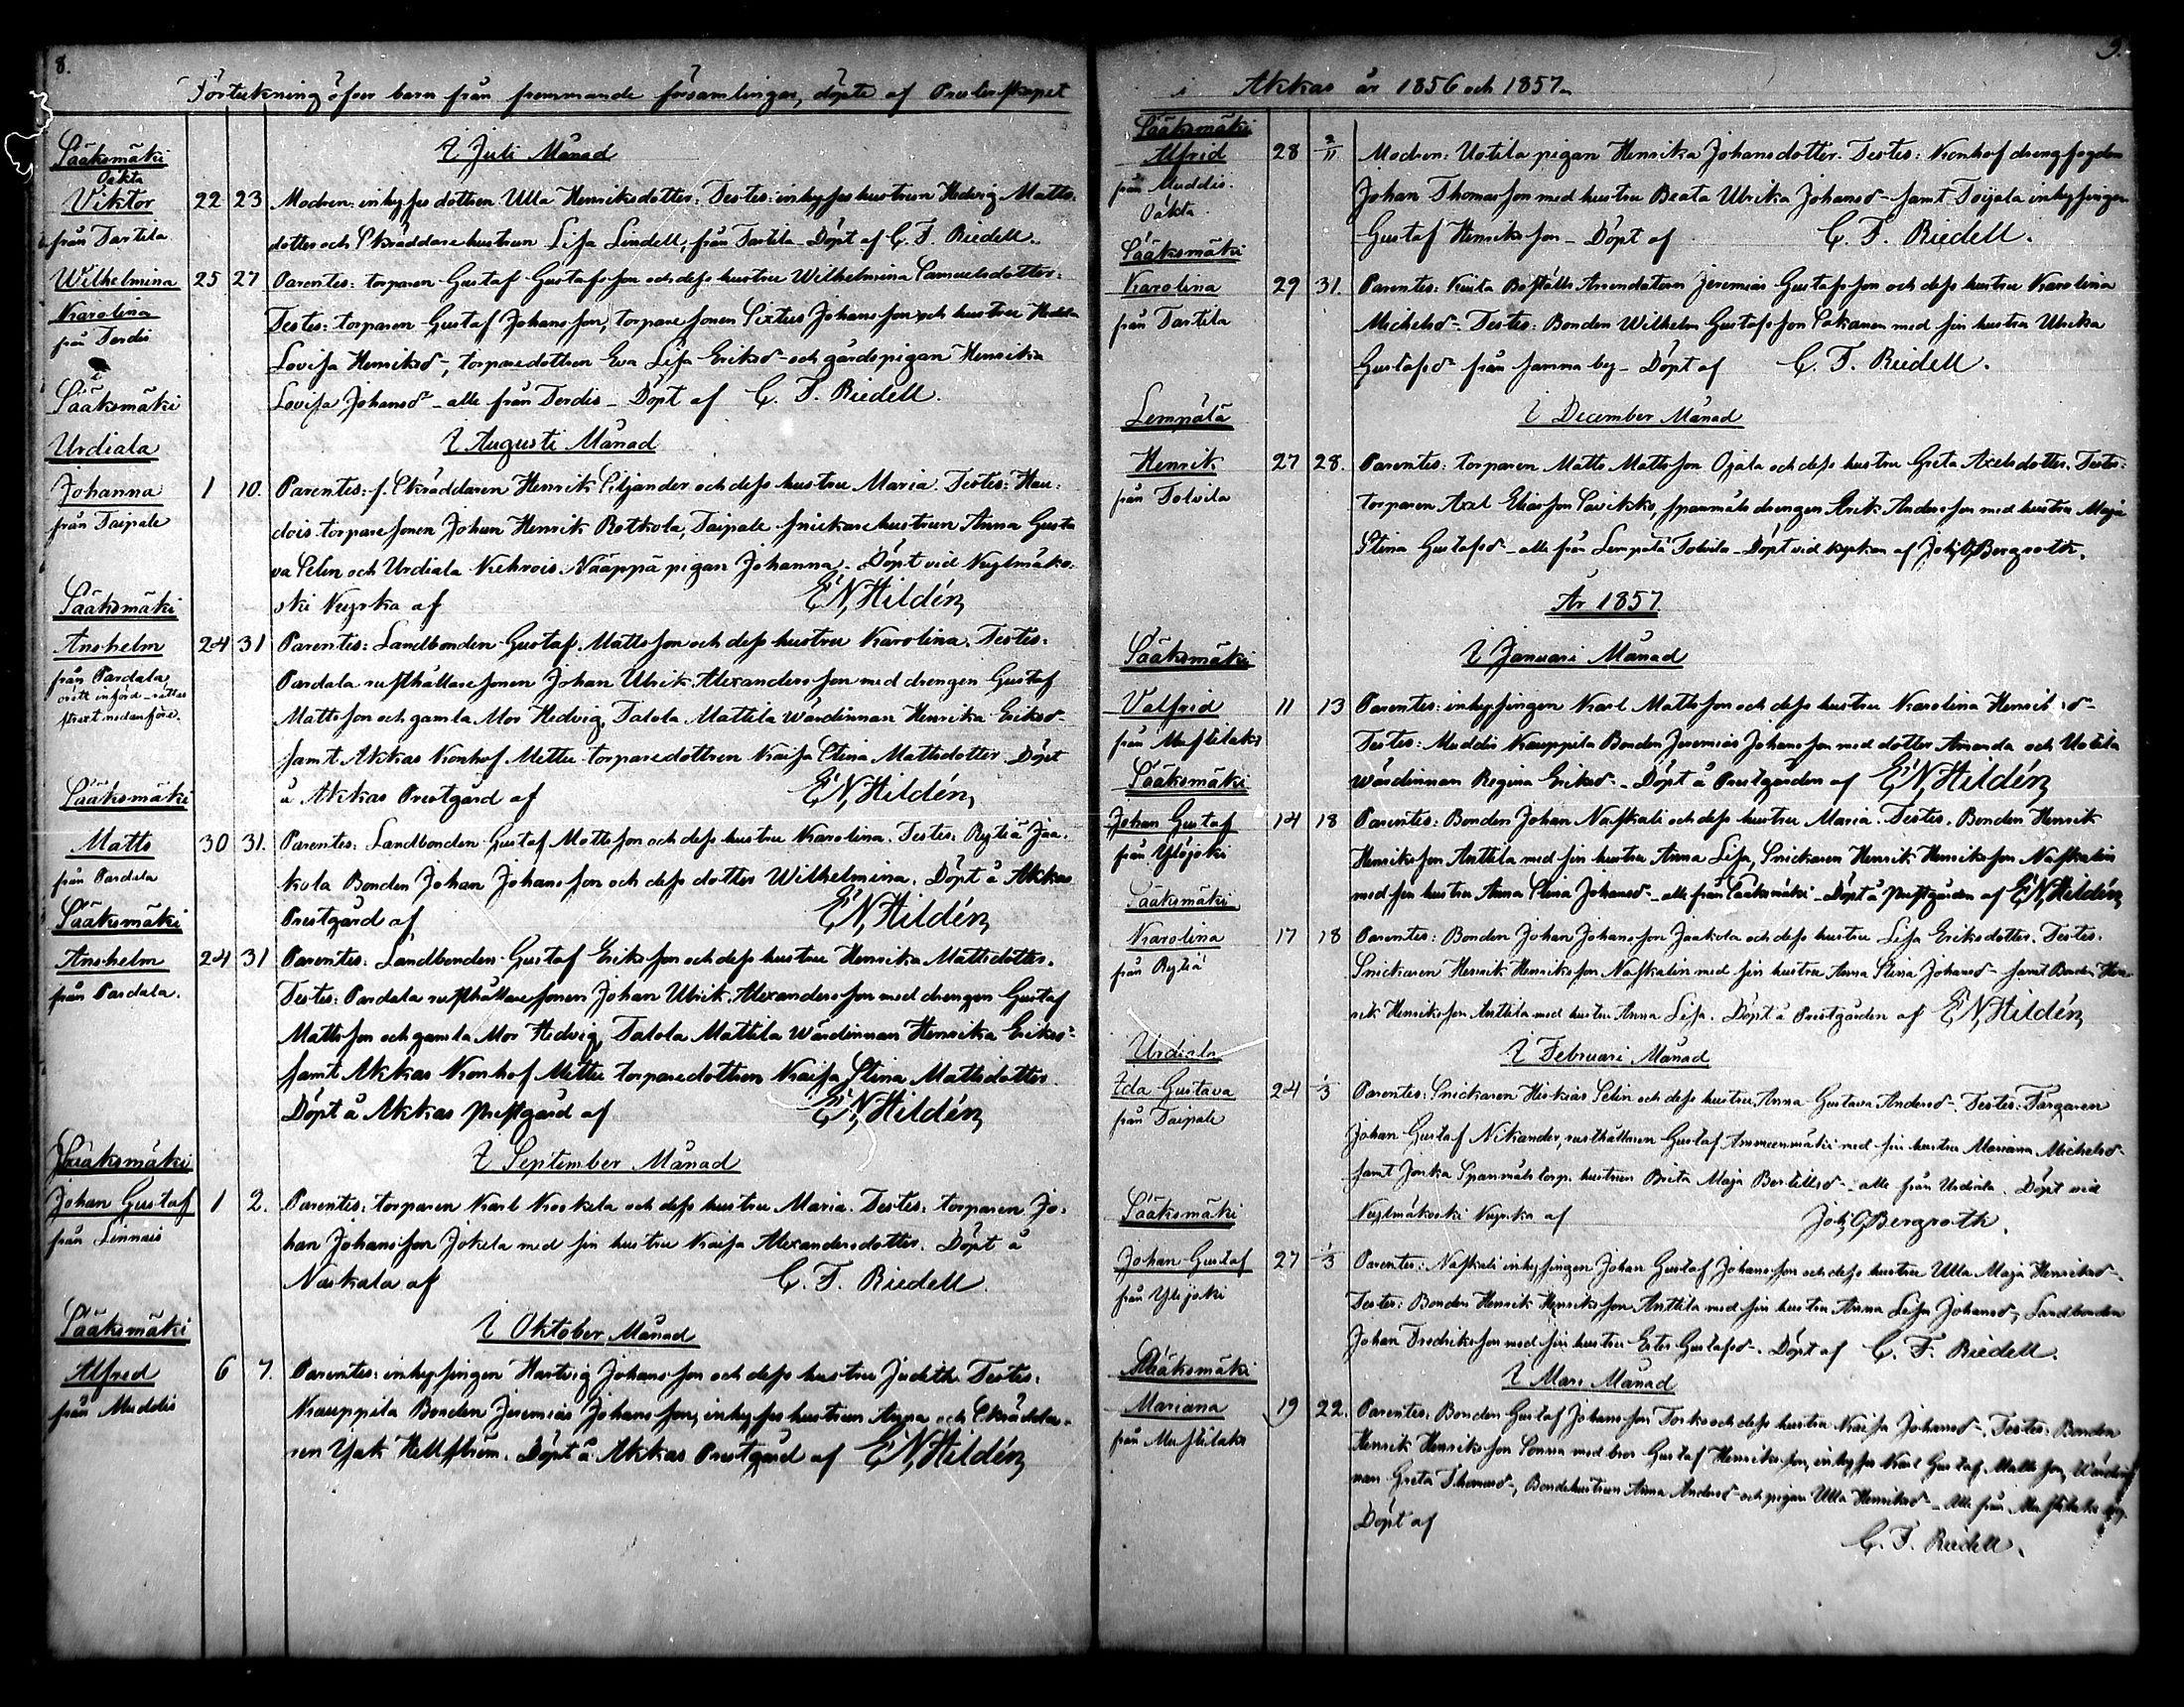 8.
Förteckning öfver barn från främmande församlingar, döpte af Presterskapet
Sääksmäki
I Juli Månad
Oäkta
Viktor 22 23 Modren: inhyses dottren Ulla Henriksdotter. Testes: inhyses hustrun Hedvig Matts-
från Tartila dotter och Skräddare hustrun Lisa Lindell, från Tartila. Döpt af C. F. Riedell.
Wilhelmina 25 27 Parentes: torparen Gustaf Gustafsson och dess hustru Wilhelmina Samuelsdotter.
Karolina Testes: torparen Gustaf Johansson, torpare sonen Sixtus Johansson och hustru Hedda
från Terdis Lovisa Henriksd-, torpare dottren Eva Lisa Eriksd- och gårdspigan Henrika
Sääksmäki Lovisa Johansd- alle från Terdis - Döpt af C. F. Riedell.
Urdiala
I Augusti Månad
Johanna 1 10. Parentes: f. Skräddaren Henrik Siljander och dess hustru Maria. Testes: Hau-
från Taipale dois torpare sonen Johan Henrik Rotkola, Taipale snickare hustrun Anna Gusta
va Selin och Urdiala Kehrois Näappä pigan Johanna. Döpt vid Kylmäko-
Sääksmäki ski Kyrka af E N Hildén
Anshelm 24 31 Parentes: Landbonden Gustaf Mattsson och dess hustru Karolina. Testes:
från Pardala Pardala rusthållare sonen Johan Ulrik Alexandersson med drengen Gustaf
orätt införd - rättas
strax nedanföre. Mattsson och gamla Mor Hedvig, Talola Mattila Wärdinnan Henrika Eriksd-
samt Akkas Konhof Mettu torpare dottren Kaisa Stina Mattsdotter. Döpt
Sääksmäki å Akkas Prestgård af E N Hildén
Matts 30 31. Parentes: Landbonden Gustaf Mattsson och dess hustru Karolina. Testes: Rytiä Jaa-
från Pardala kola Bonden Johan Johansson och dess dotter Wilhelmina. Döpt å Akkas
Sääksmäki Prestgård af E N Hildén
Anshelm 24 31 Parentes: Landbonden Gustaf Eriksson och dess hustru Henrika Mattsdotter.
från Pardala. Testes: Pardala rusthållare sonen Johan Ulrik Alexandersson med drengen Gustaf
Mattsson och gamla Mor Hedvig, Talola Mattila Wärdinnan Henrika Eriksd-
samt Akkas Konhof Mettu torpare dottren Kaisa Stina Mattsdotter.
Döpt å Akkas prestgård af E N Hildén
Sääksmäki
I September Månad
Johan Gustaf 1 2. Parentes: torparen Karl Koskela och dess hustru Maria. Testes: torparen Jo-
från Linnais han Johansson Jokela med sin hustru Kaisa Alexandersdotter. Döpt å
Naskala af C. F. Riedell.
Sääksmäki
I Oktober Månad
Alfred 6 7. Parentes: inhysingen Hartvig Johansson och dess hustru Judith. Testes:
från Muddis Krauppila Bonden Jeremias Johansson, inhyses hustrun Anna och Skrädda-
ren Isak Hellström. Döpt å Akkas Prestgård af E N Hildén
9.
i Akkas år 1856 och 1857.
Sääksmäki
Alfrid 28 2/11 Modren: Uotila pigan Henrika Johansdotter. Testes: Konhof drengfogden
från Muddis. Johan Thomasson med hustru Beata Ulrika Johansd- samt Toijala inhysingen
Oäkta. Gustaf Henriksson - Döpt af C. F. Riedell.
Sääksmäki
Karolina 29 31. Parentes: Boställs Arrendatoren Jeremias Gustafsson och dess hustru Karolina
från Tartila Michelsd- Testes: Bonden Wilhelm Gustafsson Sakanen med sin hustru Ulrika
Gustafsd- från samma by - Döpt af C. F. Riedell.
Lempälä
I December Månad
Henrik 27 28. Parentes: torparen Matts Mattsson Ojala och dess hustru Greta Axelsdotter. Testes:
från Tolvila torparen Axel Eliasson Savikko, spanmåls drengen Erik Andersson med hustru Maja
Stina Gustafsd- alle från Lempälä Tolvila - Döpt vid kyrkan af Joh. G. Bergroth.
År 1857
Sääksmäki
I Januari Månad
Valfrid 11 13 Parentes: inhysingen Karl Mattsson och dess hustru Karolina Henriksd-
från Mustilaks Testes: Muddis Krauppila Bonden Jeremias Johansson med dotter Amanda och Uotila
Sääksmäki wärdinnan Regina Eriksd- Döpt å Prestgården af E N Hildén
Johan Gustaf 14 18 Parentes: Bonden Johan Naskali och dess hustru Maria. Testes: Bonden Henrik
från Ylöjoki Henriksson Anttila med sin hustru Anna Lisa, Snickaren Henrik Henriksson Naskalin
Sääksmäki med sin hustru Anna Stina Johansd- alle från Sääksmäki - Döpt å prestgården af E N Hildén
Karolina 17 18 Parentes: Bonden Johan Johansson Jaakola och dess hustru Lisa Eriksdotter. Testes:
från Rytiä Snickaren Henrik Henriksson Naskalin med sin hustru Anna Stina Johansd- samt Bonden Hen-
rik Henriksson Anttila med hustru Anna Lisa. Döpt å Prestgården af E N Hildén
Urdiala
I Februari Månad
Ida Gustava 24 1/3 Parentes: Snickaren Heskias Selin och dess hustru Anna Gustava Andersd-. Testes: Färgaren
från Taipale Johan Gustaf Nikander, rusthållaren Gustaf Ammeenmäki med sin hustru Mariana Michelsd-
samt Jonka Spanmåls torp. hustrun Brita Maja Bertilsd- alle från Urdiala. Döpt vid
Sääksmäki Kylmäkoski Kyrka af Joh. G. Bergroth.
Johan Gustaf 27 1/3 Parentes: Naskali inhysingen Johan Gustaf Johansson och dess hustru Ulla Maja Henriksd-.
från Ylöjoki Testes: Bonden Henrik Henriksson Anttila med sin hustru Anna Lisa Johansd-, Landbonden
Johan Fredriksson med sin hustru Ester Gustafsd-. Döpt af C. F. Riedell.
Sääksmäki
I Mars Månad
Mariana 19 22. Parentes: Bonden Gustaf Johansson Torko och dess hustru Kaisa Johansd-. Testes: Bonden
från Mustilaks Henrik Henriksson Sonna med bror Gustaf Henriksson, inhyses Karl Gustaf Mattsson, Wärdin
nan Greta Thomasd-, Bondehustrun Anna Andersd- och pigan Ulla Henriksd- Alle från Mustilaks by.
Döpt af
C. F. Riedell.